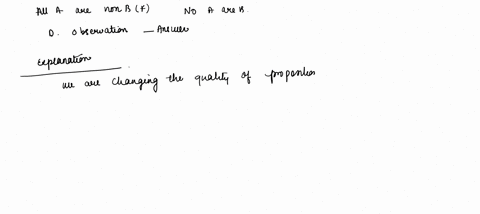 All A are non B (F) No A are B.
D. Observation — Answer
Explanation
we are changing the quality of